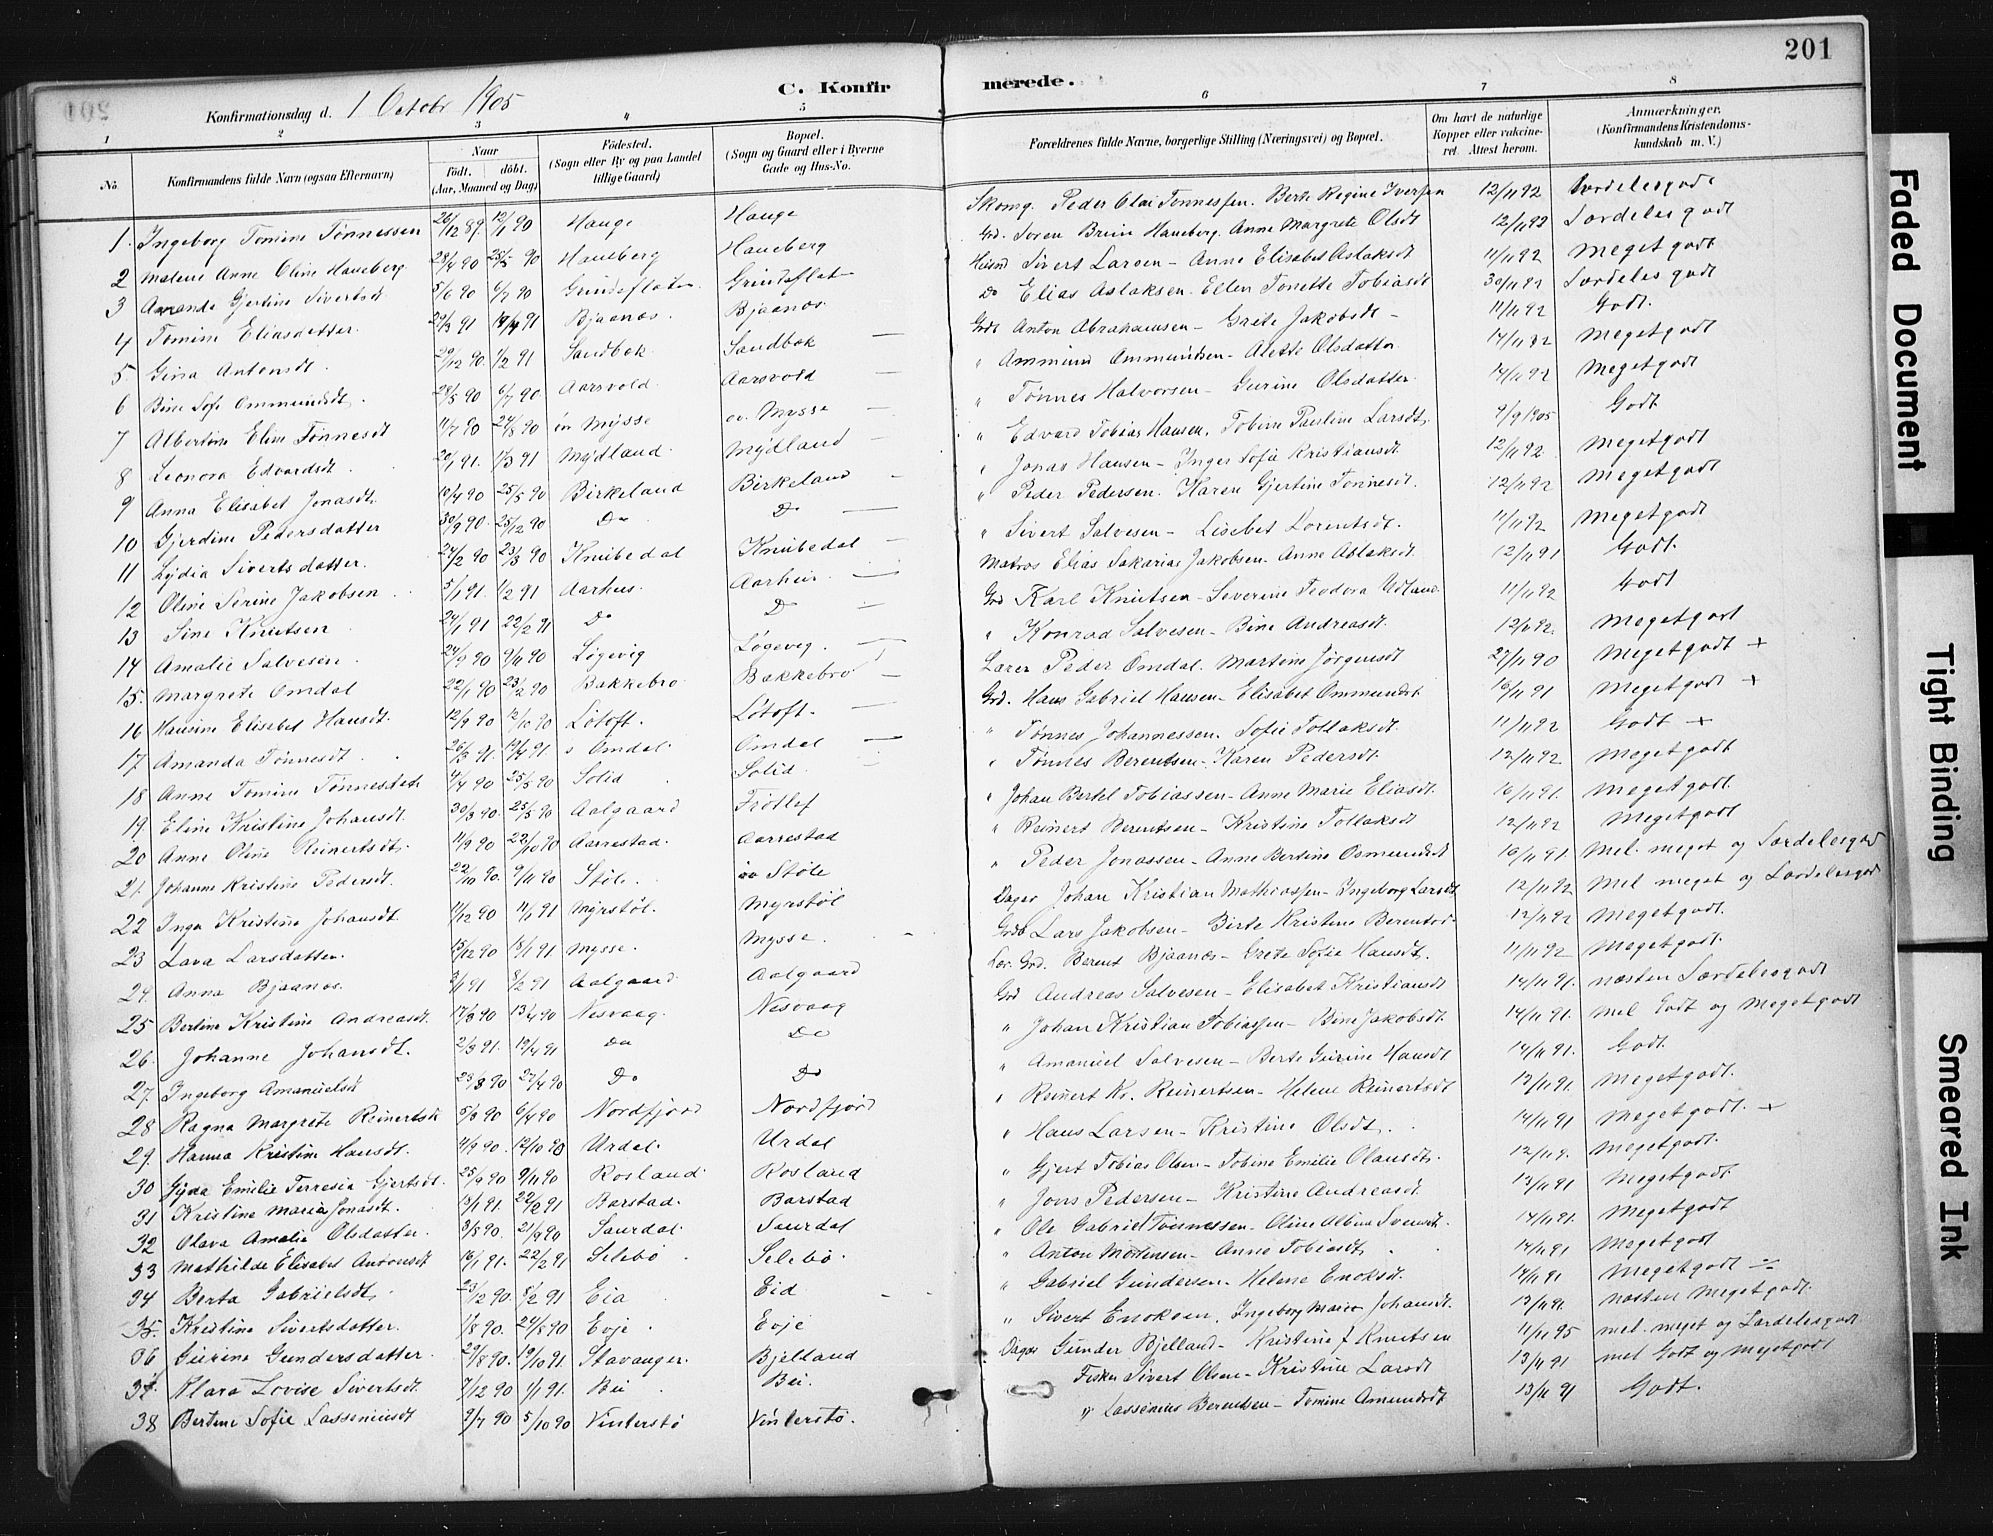 201
Konfirmationsdag d. 1 Octobr 1905
C. Konfirmerede.
1 2 3 4 5 6 7 8
No.
Konfirmandens fulde Navn (ogsaa Efternavn)
Naar født. døbt. (Aar, Maaned og Dag)
Fødested. (Sogn eller By og paa Landet tillige Gaard)
Bopæl. (Sogn og Gaard eller i Byerne Gade og Hus-No.
Forældrenes fulde Navne, borgerlige Stilling (Næringsvei) og Bopæl.
Om havt de naturlige Kopper eller vakcineret. Attest herom.
Anmærkninger. (Konfirmandens Kristendomskundskab m. V.)
1. Ingeborg Tomine Tønnessen 26/12 89. 12/1 90 Hauge Hauge Skomg. Peder Olai Tønnessen. Berte Regine Iversen 12/11 92 Særdelesgodt
2 Malene Anne Oline Haneberg 28/4 90 25/5 90 Haneberg Haneberg Grd. Soren Brein Haneberg. Anne Margrete Olsdt 12/11 92 Særdeles godt
3 Amanda Gjertine Sivertsdt 5/6 90 6/7 90 Grindsflaten Grindsflat Husmd Sivert Larsen - Anne Elisabet Aslaksdt 11/11 92 Meget godt
4 Tomine Eliasdatter 29/3 91 19/4 91 Bjaanes. Bjaanes Do Elias Aslaksen. Ellen Tonette Tobiasdt 30/11 92 Særdeles godt
5 Gina Antonsdt. 29/12 90. 1/2 91 Sandbæk. Sandbæk Grdb Anton Abrahamsen - Grete Jakobsdt 11/11 92 Godt.
6 Bine Sofi Ommundsdt. 28/5 90 6/7 90 Aarsvold. Aarsvold " Ommund Ommundsen - Alette Olsdatter 14/11 92 Megetgodt
7 Albertine Elin Tønnesdt 11/7 90 24/8 90 ov Mysse ov. Mysse " Tønnes Halvorsen - Gurine Olsdatter 14/11 92 Megetgodt
8 Leonora Edvardsdt. 20/1 91. 1/3 91 Mydland. Mydland " Edvard Tobias Hansen. Tobine Pauline Larsdt. 9/9 1905 Godt
9 Anna Elisabet Jonasdt. 10/4 90 25/5 90 Birkeland Birkeland " Jonas Hansen - Inger Sofie Kristiansdt 12/11 92. Megetgodt
10 Gjerdine Pedersdatter 30/9 90. 25/12 90 Do Do " Peder Pedersen. Karen Gjertine Tønnesdt. 12/11 92 Megetgodt
11 Lydia Sivertsdatter. 27/2 90 23/3 90 Knubedal Knubedal " Sivert Salvesen - Lisebet Lorentsdt. 11/11 92 Megetgodt
12 Oline Serine Jakobsen 5/1 91. 1/2 91 Aarhus. Aarhus. Matros Elias Sakarias Jakobsen. Anne Aslaksdt 12/11 91 Godt.
13 Sine Knutsen 24/1 91 22/2 91 Do Do Grd Karl Knutsen - Severine Teodora Udland. 11/11 92 Godt
14 Amalie Salvesen 24/9 90 9/11 90 Løgevig Løgevig. " Konrad Salvesen - Bine Andreasdt. 12/11 92. Megetgodt
15. Margrete Omdal 22/1 90 23/2 90 Bakkebrø Bakkebrø Lærer Peder Omdal. Martine Jørgensdt 27/11 90 Megetgodt +
16 Hansine Elisabet Hansdt. 12/9 90 12/10 90 Løtoft. Løtoft. Grd. Hans Gabriel Hansen - Elisabet Ommundsdt 10/11 91 Megetgodt +
17. Amanda Tønnesdt 26/3 91. 19/4 91. s Omdal. Omdal " Tønnes Johannessen. Sofie Tollaksdt. 11/11 92 Godt +
18 Anne Tomine Tønnesdatt 4/4 90 25/5 90 Solid Solid. " Tønnes Berentsen - Karen Pedersdt. 12/11 92 Megetgodt
19 Eline Kristine Johansdt. 30/3 90. 25/5 90 Aalgaard Frøtlef " Johan Bertel Tobiassen - Anne Marie Eliasdt. 16/11 91. Megetgodt
20 Anne Oline Reinertsdt. 11/9 90 22/10 90 Aarrestad. Aarrestad " Reinert Berentsen - Kristine Tollaksdt 12/11 92 Megetgodt
21. Johanne Kristine Pedersdt. 22/10 90. 9/11 90 Støle. ov Støle " Peder Jonassen - Anne Bertine Osmundsdt 16/11 91. Mel. meget og Særdelesgod
22 Inga Kristine Johansdt. 11/12 90 11/1 91 Myrstøl. Myrstøl Dagar Johan Kristian Mathiassen - Ingeborg Larsdt 12/11 92 Mel meget og Særdelesgod
23 Lava Larsdatter. 15/12 90 18/1 91 Mysse. Mysse. Grdb Lars Jakobsen - Birte Kristine Berentsd. 12/11 92 Megetgodt.
24. Anna Bjaanes. 3/1 91 8/2 91 Aalgaard. Aalgaard Lær. Grd. Berent Bjaanes - Grete Sofie Hansdt. 11/11 92 Megetgodt.
25 Bertine Kristine Andreasdt. 17/3 90 13/4 90 Nesvaag. Nesvaag Grd Andreas Salvesen - Elisabet Kristiansdt 14/11 91. næsten Særdelesgodt
26. Johanne Johansdt. 2/3 91. 19/4 91 Do Do " Johan Kristian Tobiassen - Bine Jakobsdt. 14/11 91. mel Godt og Megetgodt
27. Ingeborg Amanuelsdt 23/3 90 27/4 90 Do Do " Amanuel Salvesen - Berte Gurine Hansdt 14/11 91. Godt.
28 Ragna Margrete Reinertsdt 5/3 90 6/4 90 Nordfjord Nordfjord " Reinert Kr. Reinertsen - Helene Reinertsdt 13/11 91. Megetgodt.
29. Hanna Kristine Hansdt. 4/9 90. 12/10 90 Urdal. Urdal " Hans Larsen - Kristine Olsdt. 14/11 91 Megetgodt. +
30 Gyda Emilie Terresia Gjertsdt. 25/9 90 9/11 90 Rosland. Rosland " Gjert Tobias Olsen - Tobine Emilie Olausdt. 12/11 9. Megetgodt.
31 Kristine Maria Jonasdt. 13/1 91. 22/2 91 Barstad. Barstad " Jons Pedersen - Kristine Andreasdt 13/11 91 Megetgodt
32 Olava Amalie Olsdatter. 3/8 90. 21/9 90 Saurdal. Saurdal " Ole Gabriel Tønnessen - Oline Albine Svensdt. 14/11 91. Megetgodt
33 Mathilde Elisabet Antonsdt 16/1 91. 22/2 91 Selebø Selebø. " Anton Mortensen - Anne Tobiasdt. 14/11 91 Megetgodt
34 Berta Gabrielsdt. 23/12 90. 8/2 91 Eia Eid " Gabriel Gundersen - Helene Enoksdt. 14/11 91 Megetgodt
35. Kristine Sivertsdatter. 1/8 90. 24/8 90 Evje. Evje " Sivert Enoksen. Ingeborg Marie Johansdt. 13/11 91. næsten Megetgodt.
36 Gurine Gundersdatter. 29/8 90. 19/10 91. Stavanger. Bjelland Dagar Gunder Bjelland - Kristine f Knutsen 11/11 95 mel. meget og Særdelesgod
37. Klara Lovise Sivertsdt. 7/12 90 1/1 91. Bu Bu. Fisker Sivert Olsen - Kristine Larsdt 13/11 91 mel Godt og Megetgodt
38 Bertine Sofie Lasseniusdt 9/7 90 5/10 90 Vinterstø Vinterstø. " Lassenius Berentsen - Tomine Amundsdt 13/11 91 Godt.
Faded Document
Tight Binding
Smeared Ink